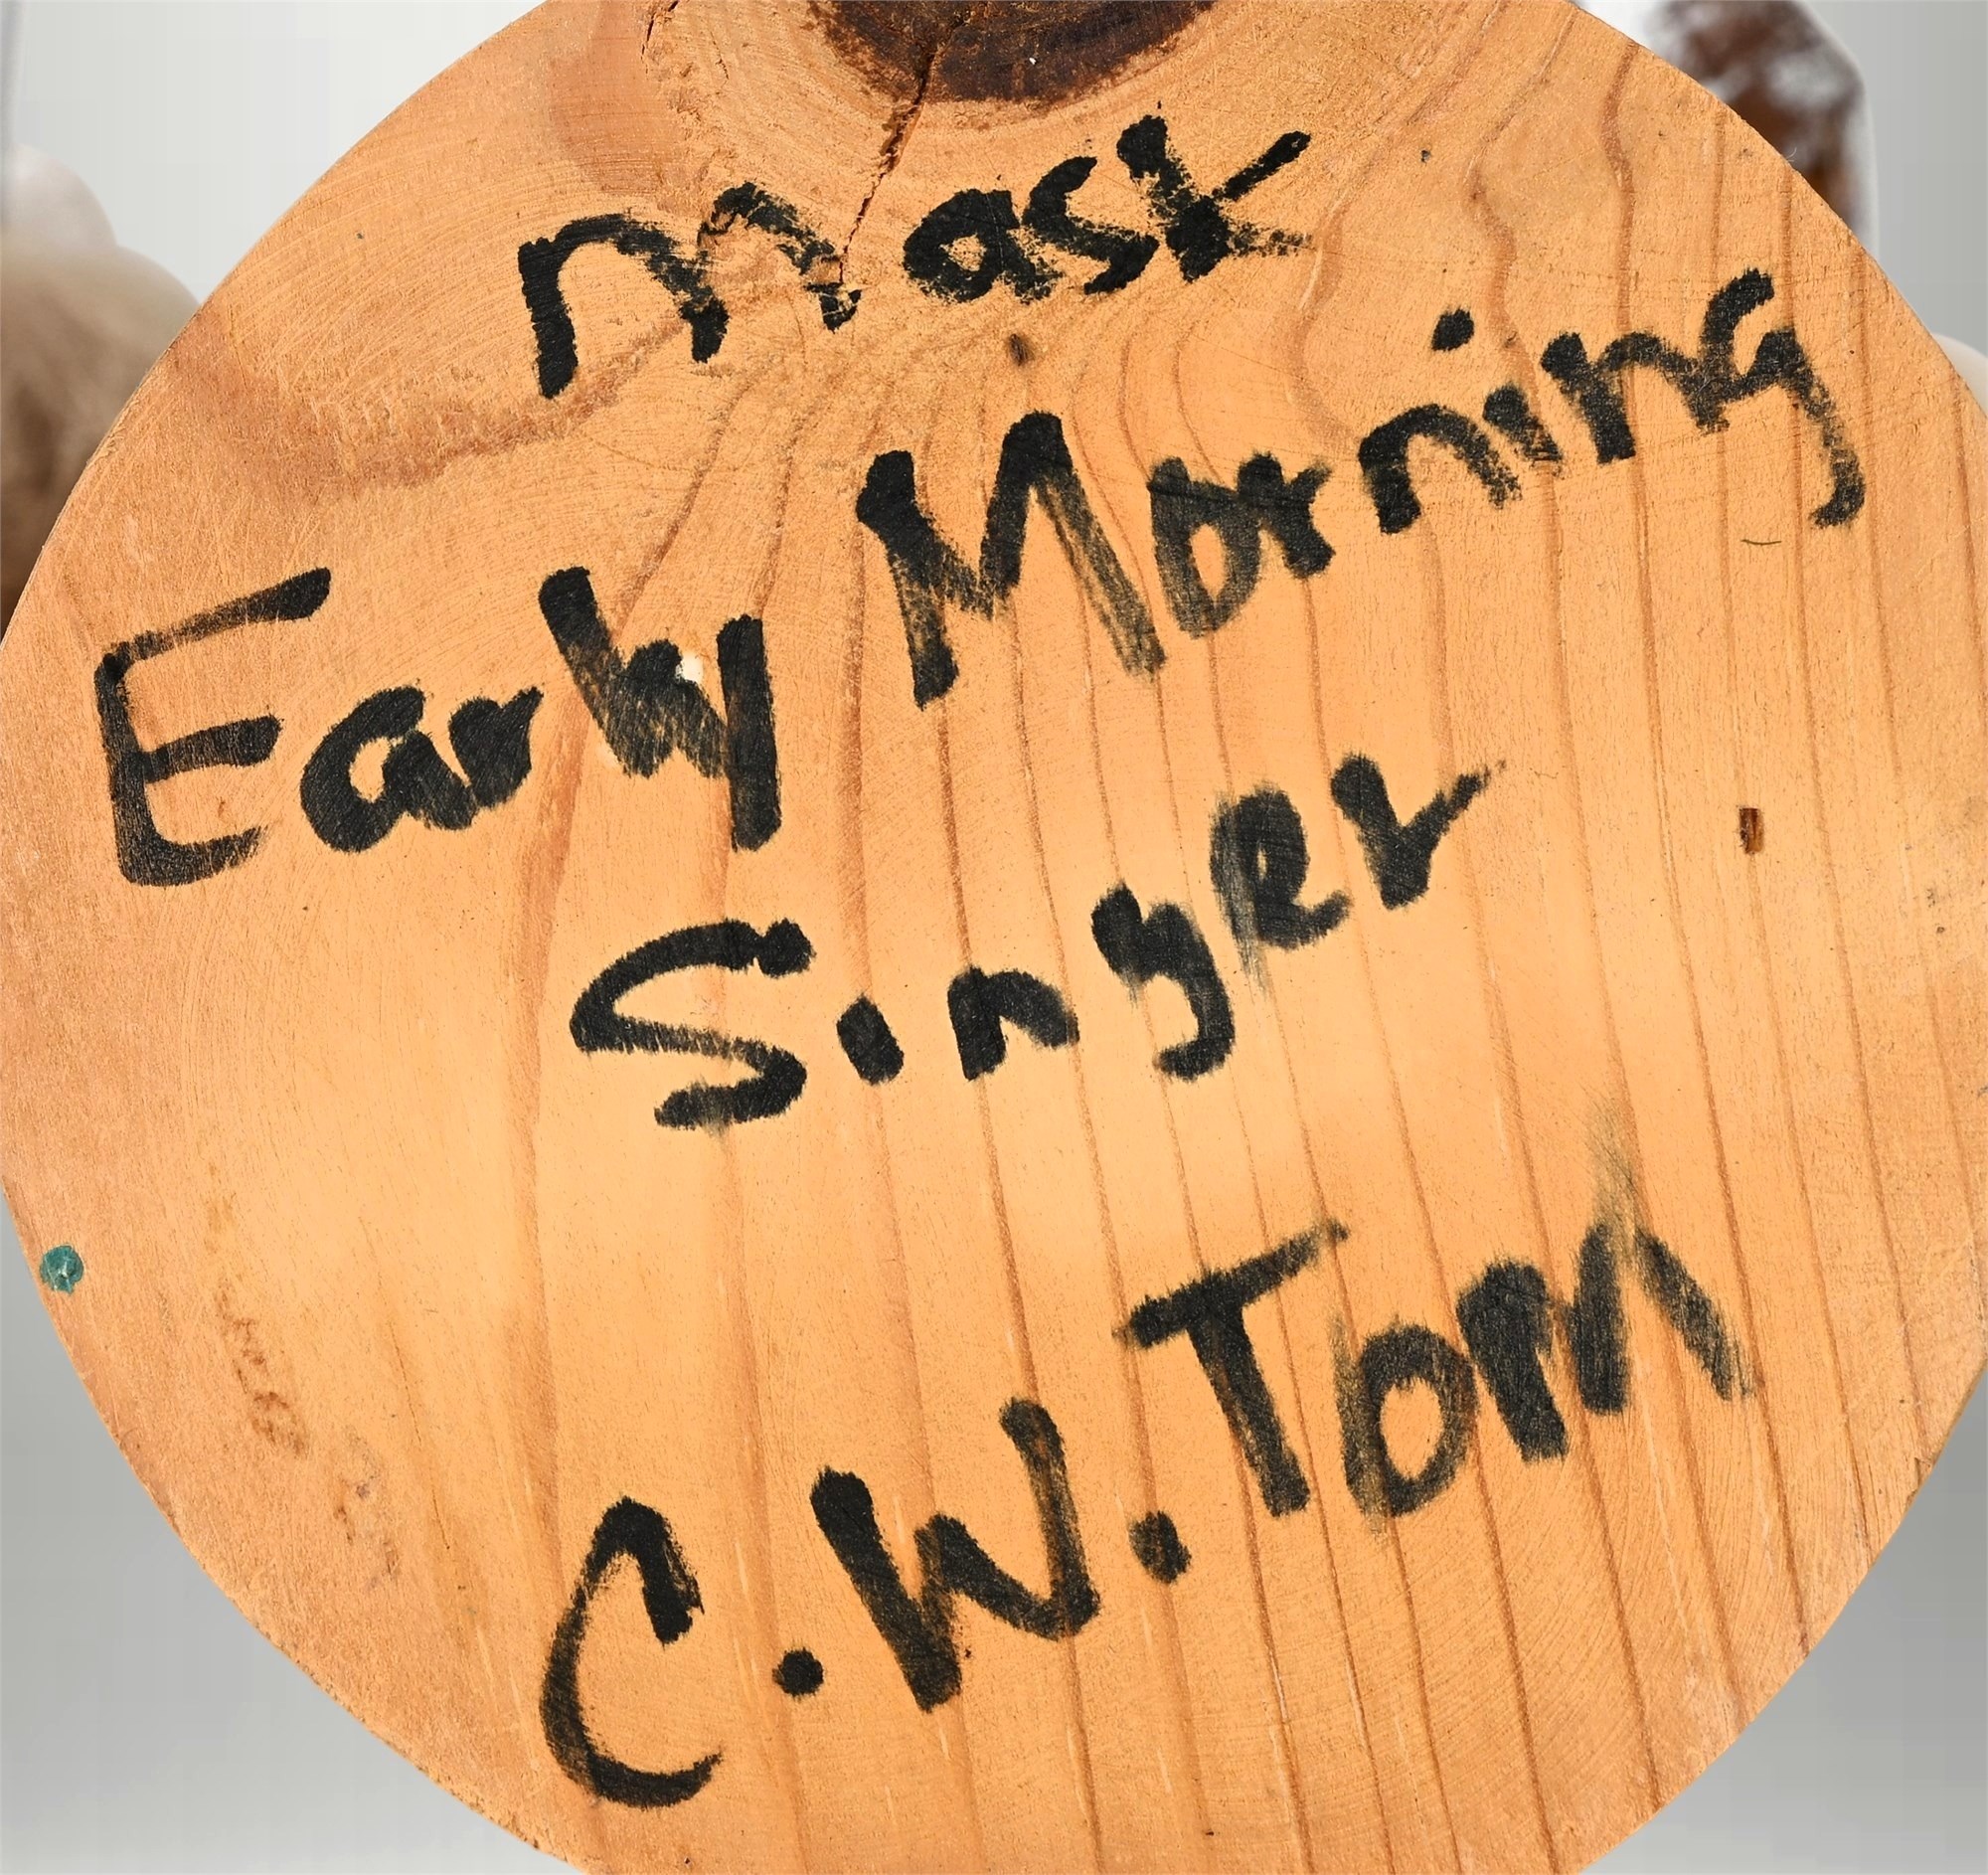 mask
Early Morning
Singer
C.W. Tom